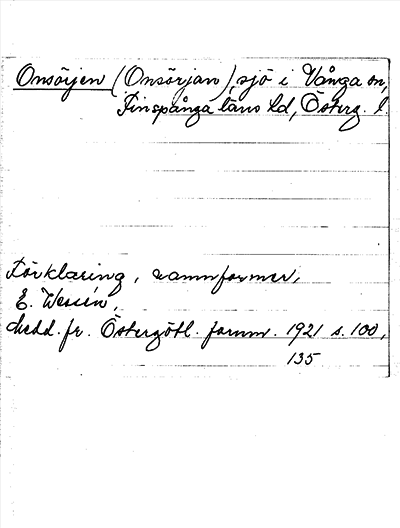 Onsörjen (Onsörjan), sjö i Vånga sn,
Finspånga läns hd, Österg. l.
Förklaring, namnformer,
E. Wessén,
Medd. fr. Östergötl. fornm. 1921 s. 100,
135